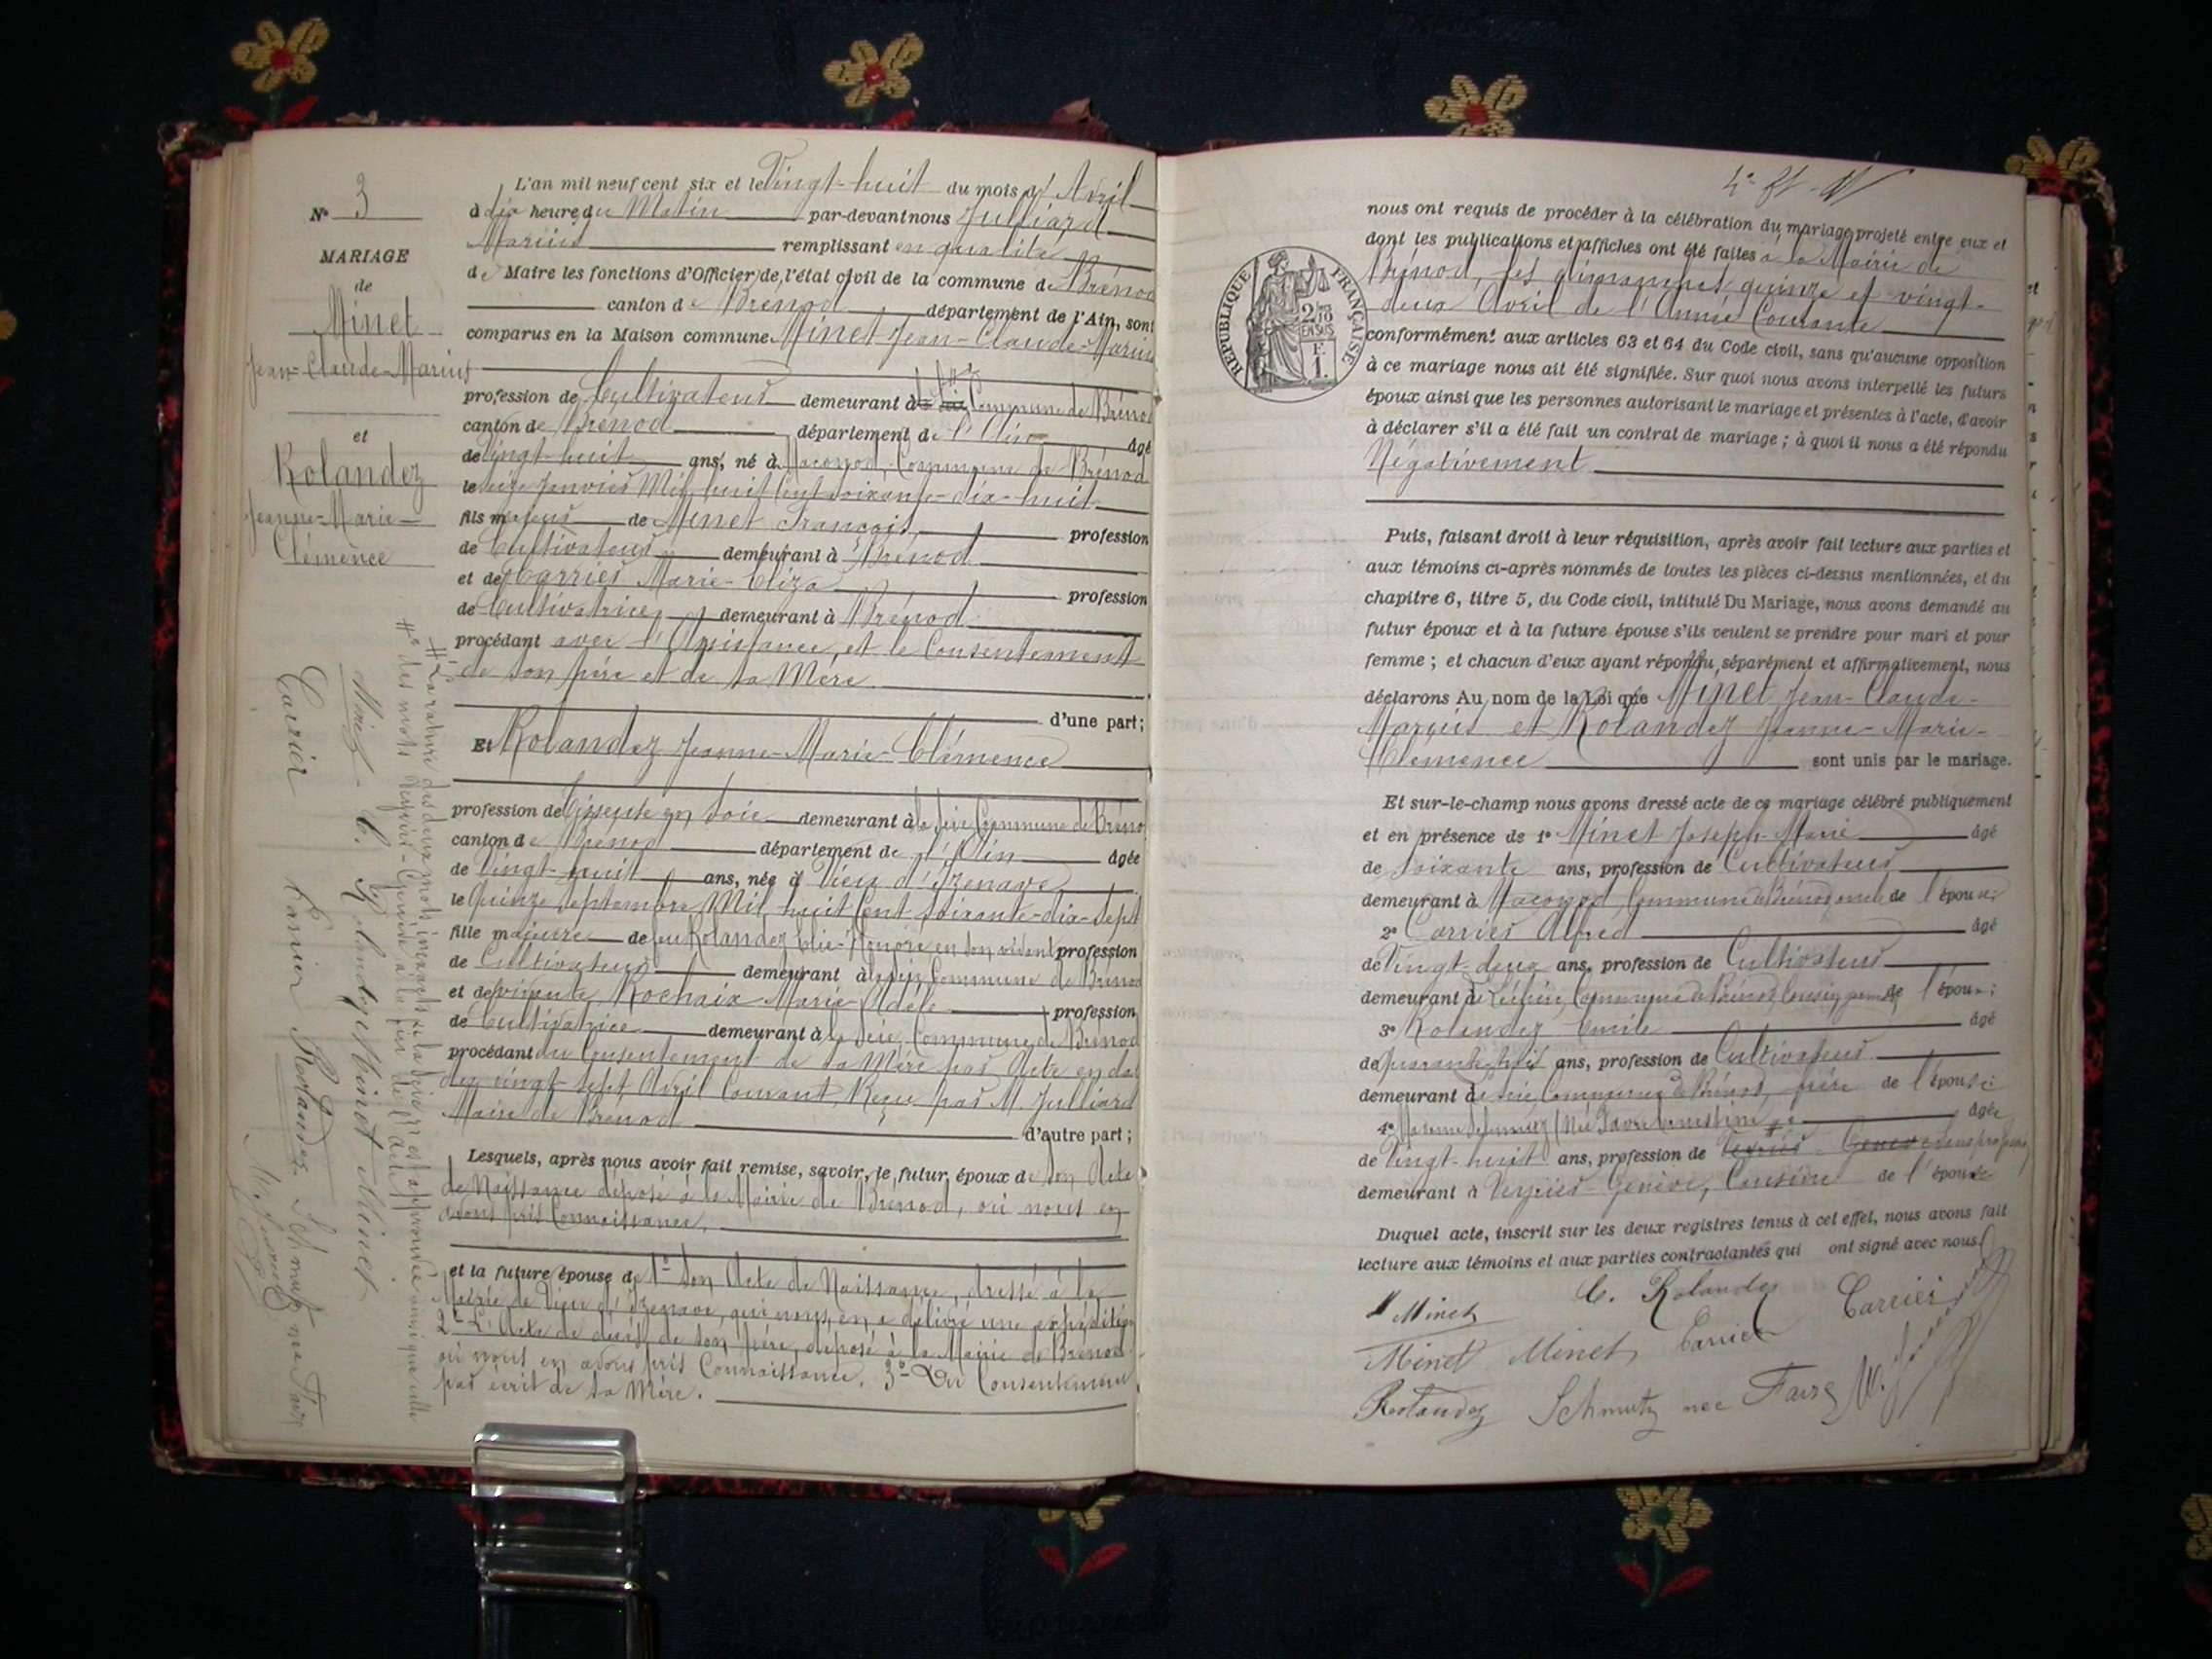 N° 3
MARIAGE
de
Minet
Jean-Claude-Marius
et
Rolandez
Jeanne-Marie-
Clémence
L'an mil neuf cent six et le Vingt-huit du mois d'Avril
à dix heure du Matin par-devant nous Julliard
Marius remplissant en qualité
de Maire les fonctions d'Officier de l'état civil de la commune de Brénod
canton de Brénod département de l'Ain, sont
comparus en la Maison commune Minet Jean-Claude-Marius
profession de Cultivateur demeurant à Commune de Brénod
canton de Brénod département de l'Ain âgé
de Vingt-huit ans, né à Macconod, Commune de Brénod
le Janvier Mil huit Cent soixante-dix-huit
fils majeur de Minet François profession
de Cultivateur demeurant à Brénod
et de Carrier Marie-Eliza profession
de Cultivatrice demeurant à Brénod
procédant avec l'Assistance et le Consentement
de son père et de sa Mère
d'une part;
Et Rolandez Jeanne-Marie-Clémence
profession de Tisseuse en soie demeurant à Commune de Brénod
canton de Brénod département de l'Ain âgée
de Vingt-huit ans, née à Vieu d'Izenave
le Quinze Septembre Mil huit Cent soixante-dix-sept
fille majeure de feu Rolandez Elie-Honoré en son vivant profession
de Cultivateur demeurant à Commune de Brénod
et de vivante Rochaix Marie Adèle profession
de Cultivatrice demeurant à Commune de Brénod
procédant du Consentement de sa Mère par Acte en date
du vingt-sept Avril Courant, Reçu par M. Julliard
Maire de Brénod
d'autre part;
Lesquels, après nous avoir fait remise, savoir, le futur époux de son Acte
de Naissance déposé à la Mairie de Brénod, où nous en
avons pris Connaissance,
et la future épouse de 1° Son Acte de Naissance, dressé à la
Mairie de Vieu d'Izenave, qui nous en a délivré une expédition
2° L'Acte de décès de son père, déposé à la Mairie de Brénod
où nous en avons pris Connaissance. 3° Du Consentement
par écrit de sa Mère.
des mots Veyrier-Genève à la fin de l'acte
Minet C. Rolandez Minet Minet
Carrier Carrier Rolandez Schmutz née Favre
nous ont requis de procéder à la célébration du mariage projeté entre eux et
dont les publications et affiches ont été faites à la Mairie de
Brénod, les dimanches quinze et vingt-
deux Avril de l'Année Courante
RÉPUBLIQUE FRANÇAISE
2/10 EN SUS
F. 1.
conformément aux articles 63 et 64 du Code civil, sans qu'aucune opposition
à ce mariage nous ait été signifiée. Sur quoi nous avons interpellé les futurs
époux ainsi que les personnes autorisant le mariage et présentes à l'acte, d'avoir
à déclarer s'il a été fait un contrat de mariage; à quoi il nous a été répondu
Négativement
Puis, faisant droit à leur réquisition, après avoir fait lecture aux parties et
aux témoins ci-après nommés de toutes les pièces ci-dessus mentionnées, et du
chapitre 6, titre 5, du Code civil, intitulé Du Mariage, nous avons demandé au
futur époux et à la future épouse s'ils veulent se prendre pour mari et pour
femme; et chacun d'eux ayant répondu séparément et affirmativement, nous
déclarons Au nom de la Loi que Minet Jean-Claude-
Marius et Rolandez Jeanne-Marie-
Clémence sont unis par le mariage.
Et sur-le-champ nous avons dressé acte de ce mariage célébré publiquement
et en présence de 1° Minet Joseph-Marie âgé
de soixante ans, profession de Cultivateur
demeurant à Macconod, Commune de Brénod, oncle de l'époux;
2° Carrier Alfred âgé
de Vingt-deux ans, profession de Cultivateur
demeurant à Commune de Brénod, Cousin germain de l'époux;
3° Rolandez Emile âgé
de quarante-trois ans, profession de Cultivateur
demeurant à Commune de Brénod, frère de l'épouse
4° Madame Schmutz (Née Favre) âgée
de Vingt-huit ans, profession de
demeurant à Veyrier-Genève, Cousine de l'épouse
Duquel acte, inscrit sur les deux registres tenus à cet effet, nous avons fait
lecture aux témoins et aux parties contractantes qui ont signé avec nous
Minet C. Rolandez Carrier
Minet Minet Carrier
Rolandez Schmutz née Favre